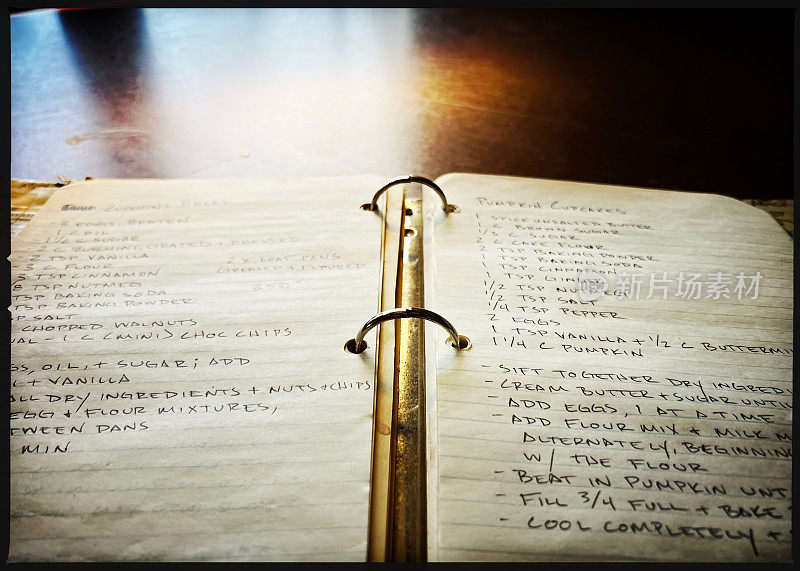 Zucchini Bread
3 eggs, beaten
1 c oil
1 1/2 c sugar
2 c zucchini, grated + pressed
2 tsp vanilla
3 c flour
tsp cinnamon
tsp nutmeg
tsp baking soda
tsp baking powder
salt
chopped walnuts
- 1 c (mini) choc chips
2 x loaf pans
greased + floured
350
oil, + sugar; add
+ vanilla
dry ingredients + nuts + chips
egg + flour mixtures,
pans
min
Pumpkin Cupcakes
1 stick unsalted butter
1 c brown sugar
1/3 c sugar
2 c cake flour
2 tsp baking powder
1 tsp baking soda
1 tsp cinnamon
1 tsp
1/2 tsp nutmeg
1/2 tsp salt
1/4 tsp pepper
2 eggs
1 tsp vanilla + 1/2 c buttermi
1 1/4 c pumpkin
- sift together dry ingred
- cream butter + sugar unti
- add eggs, 1 at a time
- add flour mix + milk
alternately, beginning
w/ the flour
- beat in pumpkin unt
- fill 3/4 full + bake
- cool completely +
新片场